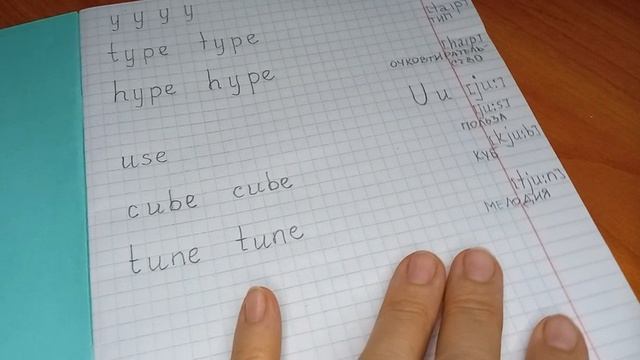 y y y y
[taɪp]
тип
type type
[haɪp]
очковтиратель-
ство
hype hype
U u [ju:]
[ju:s]
польза
use
[kju:b]
куб
cube cube
[tju:n]
мелодия
tune tune